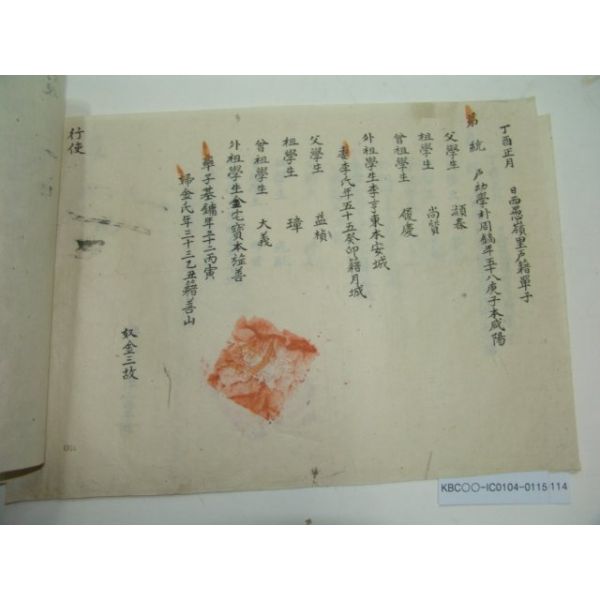 丁酉正月 日西愚嶺里戶籍單子
第 統 戶幼學朴周鶴年五十八庚子本咸陽
父學生 頴泰
祖學生 尚質
曾祖學生 履慶
外祖學生李亨東本安城
妻李氏年五十五癸卯籍月城
父學生 益楨
祖學生 瑋
曾祖學生 大義
外祖學生金宅寶本益善
率子基鏞年三十二丙寅
婦金氏年三十三乙丑籍善山
奴金三故
行使
KBC○○-IC0104-0115 114